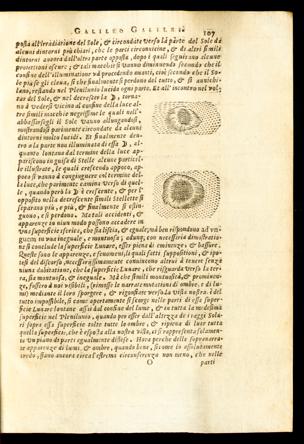 GALILEO GALILEI 107
posta all'irradiatione del Sole, & circondate verso la parte del Sole da
alcuni dintorni più chiari, che le parti circonvicine, & da altri simili
dintorni oscuri dall'altra parte opposta, dopo i quali seguir
protrettioni oscure; & tali macchie si vanno diminuendo secondo che il
confine dell'illuminatione và procedendo avanti, cioè secondo che il So-
le più gli eleva, si che finalmente si perdono del tutto, & si
lano, restando nel Plenilunio lucido ogni parte. Et all'incontro nel vol-
tar del Sole, & nel decrescer la D, torna-
no à vedersi vicino al confine della luce al-
tre simili macchie negrissime le quali nell'
abbassarsegli il Sole vanno allungandosi,
mostrandosi parimente circondate da alcuni
dintorni molto lucidi. Et finalmente den-
tro alla parte non illuminata di essa D, al-
quanto lontano dal termine della luce ap-
pariscono in guisa di Stelle alcune particel-
le illustrate, le quali crescendo appoco, ap-
poco si vanno à congiugnere col termine del-
la luce, che parimente camina verso di quel-
le, quando però la D è crescente, & per l'
opposito nella decrescente simili Stellette si
separano più, e più, & finalmente si estin-
guono, e si perdono. Ma tali accidenti, &
apparenze in niun modo possono accadere in
una superficie sferica, che sia liscia, & eguale, mà ben rispondono ad
una ineguale, e montuosa; adunque con necessaria dimostratio-
ne si conclude la superficie Lunare, esser piena di eminenze, & bassure.
Queste sono le apparenze, e fenomeni, i quali fatti suppositioni, & ipo-
tesi del discorso, necessariissimamente convincono altrui à tener senza
niuna dubitatione, che la superficie Lunare, che risguarda verso la ter-
ra, sia montuosa, & ineguale. Mà che simili montuosità, & prominenze,
fussero à noi visibili, (rimosse le narrate mutationi di ombre, e di lu-
mi) mediante il loro sporgere, & rilevare verso la vista nostra; è del
tutto impossibile, si come apertamente si scorge nelle parti di essa super-
ficie Lunare lontane assai dal confine del lume, & in tutta la medesima
superficie nel Plenilunio, quando per esser dall'altezza de i raggi Sola-
ri sopra essa superficie tolte tutte le ombre, & ripiena di luce tutta
quella superficie, che è esposta alla nostra vista, ci si rappresenta solamen-
te un piano di parti egualmente distese. Hora perche delle sopranarra-
te apparenze di lumi, & ombre, quando bene, si come io assolutamente
credo, siano ancora circa l'estrema circonferenza non meno, che nelle
O parti